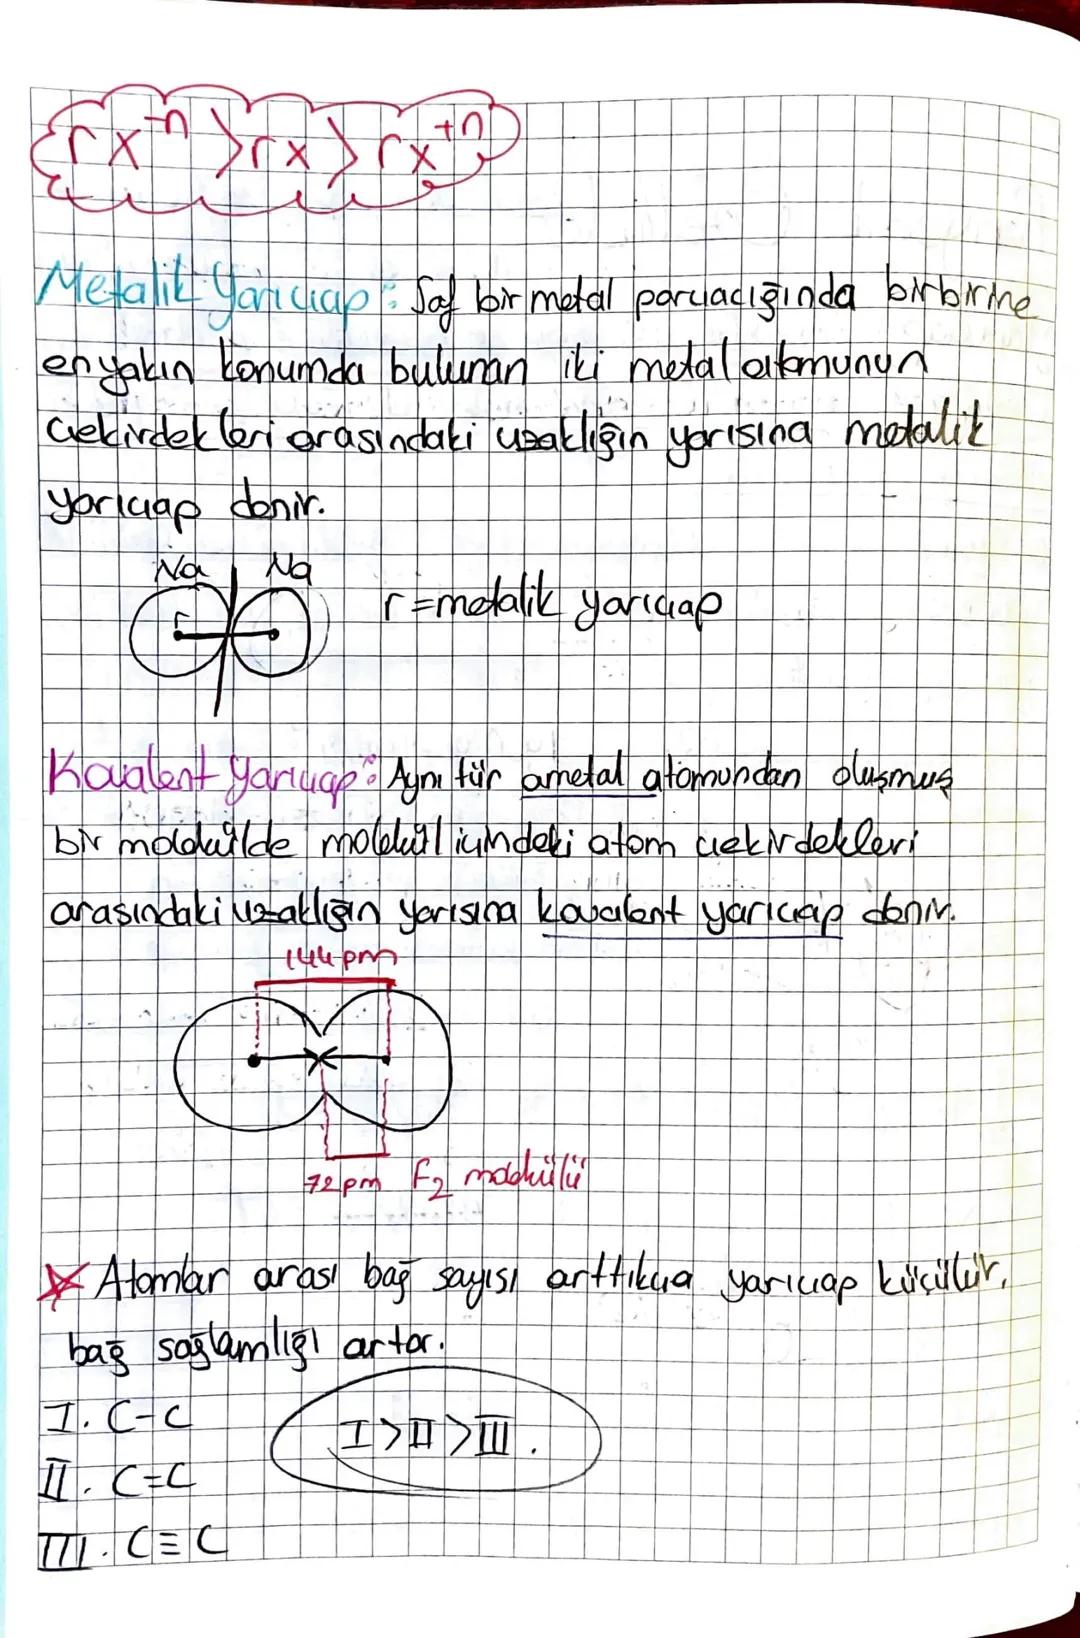 rx⁻ⁿ > rx > rx⁺ⁿ
Metalik Yarıçap: Saf bir metal parçacığında birbirine
en yakın konumda bulunan iki metal atomunun
çekirdekleri arasındaki uzaklığın yarısına metalik
yarıçap denir.
Na Na
r
r = metalik yarıçap
Kovalent Yarıçap: Aynı tür ametal atomundan oluşmuş
bir molekülde molekül içindeki atom çekirdekleri
arasındaki uzaklığın yarısına kovalent yarıçap denir.
144 pm
72 pm F₂ molekülü
Atomlar arası bağ sayısı arttıkça yarıçap küçülür,
bağ sağlamlığı artar.
I. C-C
I > II > III.
II. C=C
III. C≡C